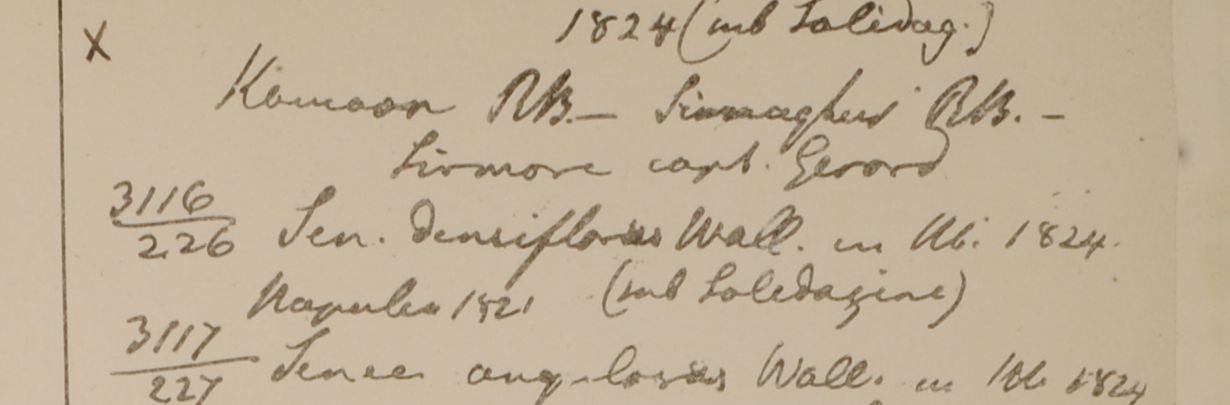 1824 (sub Solidag.)
X
Kamaon RB. — RB. —
Sirmore capt. Gerard
3116/226 Sen. densiflorus Wall. in Hb. 1824.
Napalia 1821 (sub Solidagine)
3117/227 Senec. angulosus Wall. in Hb. 1824